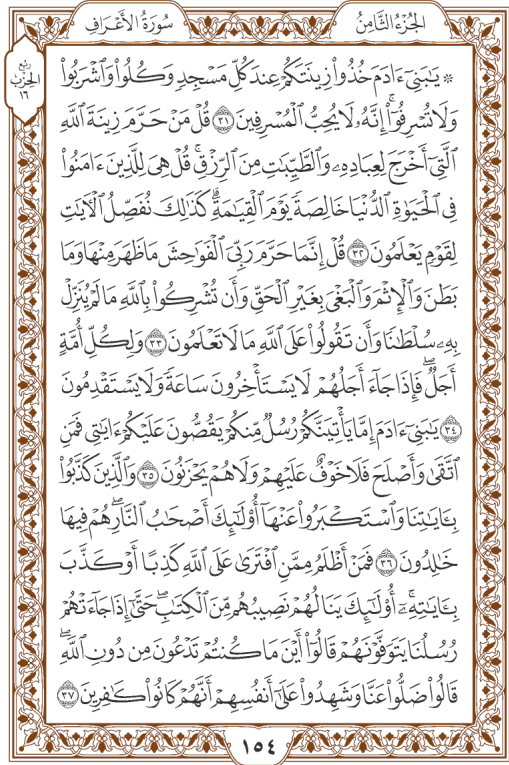 الجُزْءُ الثَّامِنُ
سُورَةُ الأَعْرَافِ
رُبع
الحِزْب
١٦
۞ يَٰبَنِيٓ ءَادَمَ خُذُوا۟ زِينَتَكُمْ عِندَ كُلِّ مَسْجِدٍ وَكُلُوا۟ وَٱشْرَبُوا۟
وَلَا تُسْرِفُوٓا۟ۚ إِنَّهُۥ لَا يُحِبُّ ٱلْمُسْرِفِينَ ٣١ قُلْ مَنْ حَرَّمَ زِينَةَ ٱللَّهِ
ٱلَّتِيٓ أَخْرَجَ لِعِبَادِهِۦ وَٱلطَّيِّبَٰتِ مِنَ ٱلرِّزْقِۚ قُلْ هِيَ لِلَّذِينَ ءَامَنُوا۟
فِي ٱلْحَيَوٰةِ ٱلدُّنْيَا خَالِصَةً يَوْمَ ٱلْقِيَٰمَةِۗ كَذَٰلِكَ نُفَصِّلُ ٱلْءَايَٰتِ
لِقَوْمٍ يَعْلَمُونَ ٣٢ قُلْ إِنَّمَا حَرَّمَ رَبِّيَ ٱلْفَوَٰحِشَ مَا ظَهَرَ مِنْهَا وَمَا
بَطَنَ وَٱلْإِثْمَ وَٱلْبَغْيَ بِغَيْرِ ٱلْحَقِّ وَأَن تُشْرِكُوا۟ بِٱللَّهِ مَا لَمْ يُنَزِّلْ
بِهِۦ سُلْطَٰنًا وَأَن تَقُولُوا۟ عَلَى ٱللَّهِ مَا لَا تَعْلَمُونَ ٣٣ وَلِكُلِّ أُمَّةٍ
أَجَلٌۖ فَإِذَا جَآءَ أَجَلُهُمْ لَا يَسْتَأْخِرُونَ سَاعَةً وَلَا يَسْتَقْدِمُونَ
٣٤ يَٰبَنِيٓ ءَادَمَ إِمَّا يَأْتِيَنَّكُمْ رُسُلٌ مِّنكُمْ يَقُصُّونَ عَلَيْكُمْ ءَايَٰتِي فَمَنِ
ٱتَّقَىٰ وَأَصْلَحَ فَلَا خَوْفٌ عَلَيْهِمْ وَلَا هُمْ يَحْزَنُونَ ٣٥ وَٱلَّذِينَ كَذَّبُوا۟
بِـَٔايَٰتِنَا وَٱسْتَكْبَرُوا۟ عَنْهَآ أُو۟لَٰٓئِكَ أَصْحَٰبُ ٱلنَّارِۖ هُمْ فِيهَا
خَٰلِدُونَ ٣٦ فَمَنْ أَظْلَمُ مِمَّنِ ٱفْتَرَىٰ عَلَى ٱللَّهِ كَذِبًا أَوْ كَذَّبَ
بِـَٔايَٰتِهِۦٓۚ أُو۟لَٰٓئِكَ يَنَالُهُمْ نَصِيبُهُم مِّنَ ٱلْكِتَٰبِۖ حَتَّىٰٓ إِذَا جَآءَتْهُمْ
رُسُلُنَا يَتَوَفَّوْنَهُمْ قَالُوٓا۟ أَيْنَ مَا كُنتُمْ تَدْعُونَ مِن دُونِ ٱللَّهِۖ
قَالُوا۟ ضَلُّوا۟ عَنَّا وَشَهِدُوا۟ عَلَىٰٓ أَنفُسِهِمْ أَنَّهُمْ كَانُوا۟ كَٰفِرِينَ ٣٧
١٥٤